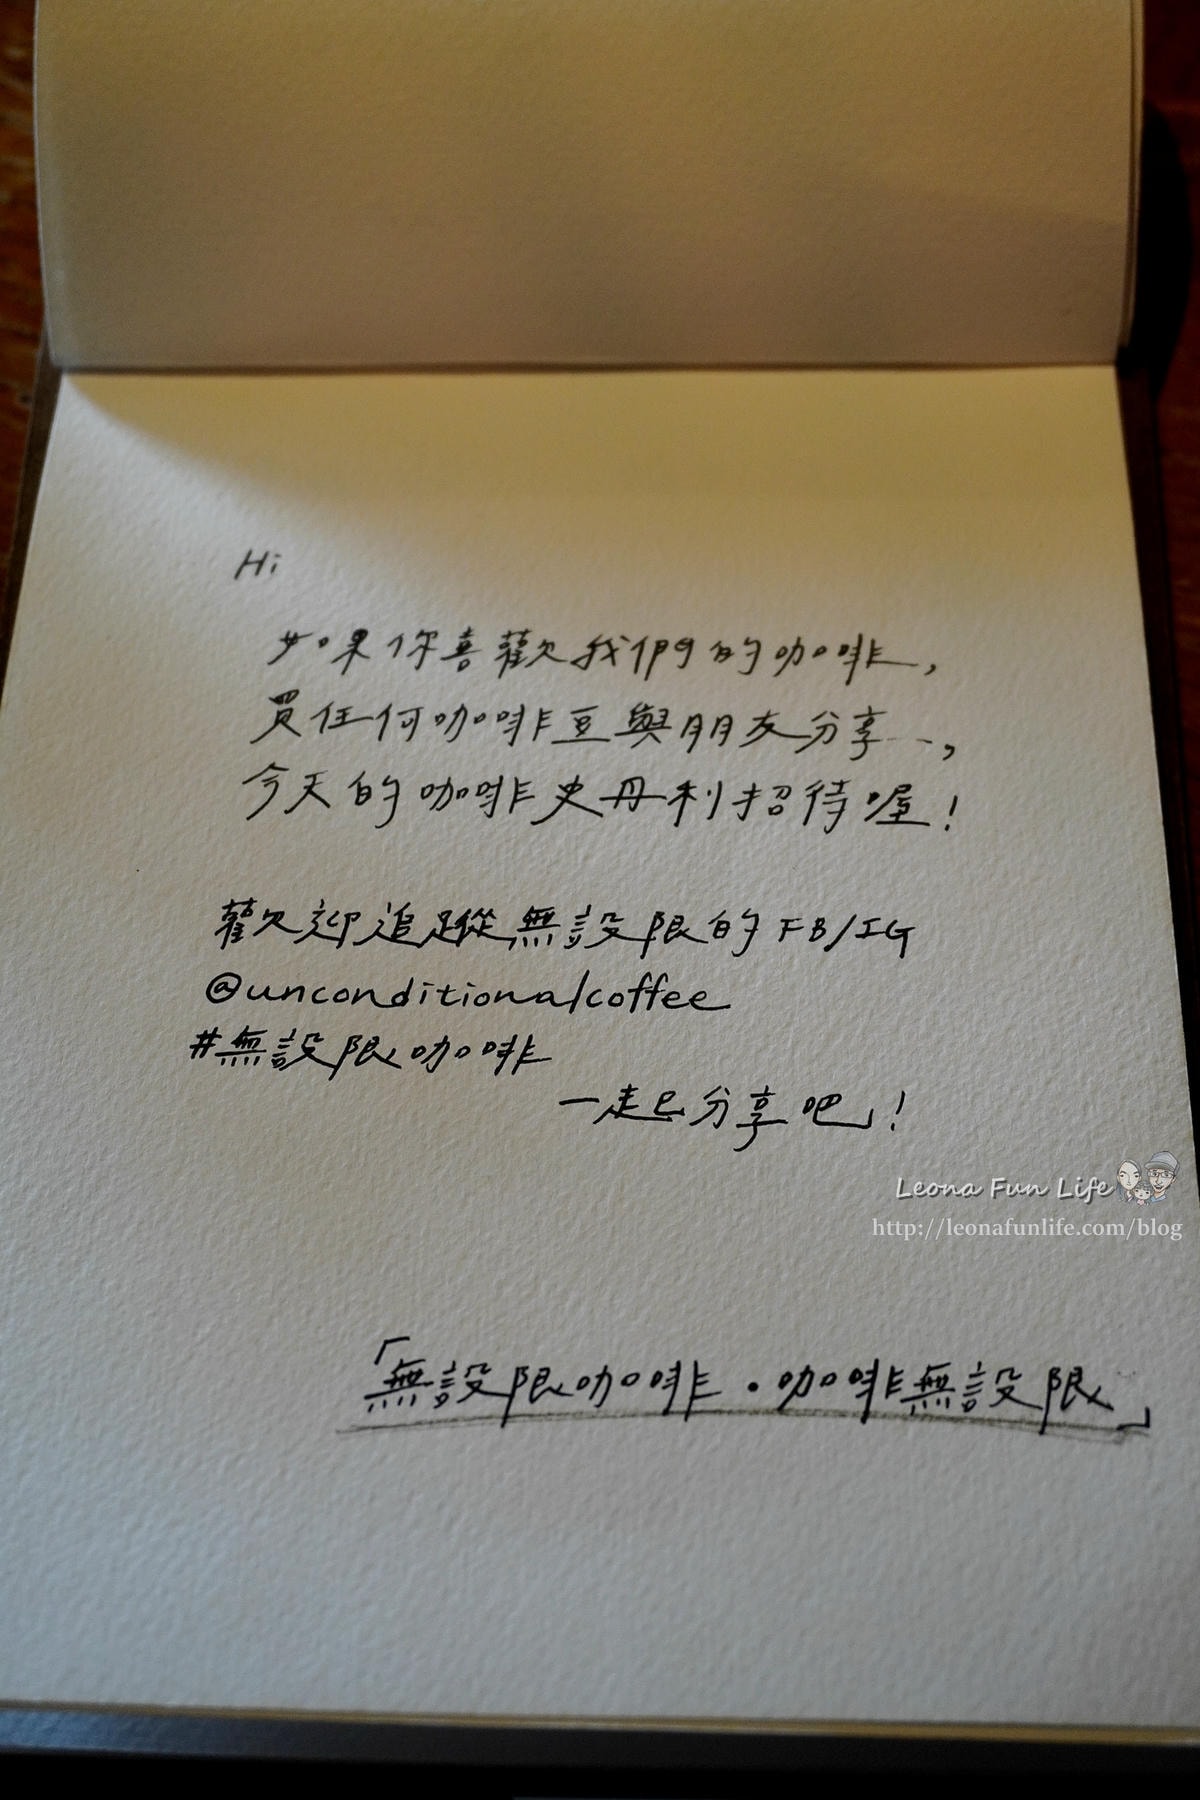 Hi
如果你喜歡我們的咖啡,
買任何咖啡豆與朋友分享…,
今天的咖啡史丹利招待喔!
歡迎追蹤無設限的 FB/IG
@unconditionalcoffee
#無設限咖啡
一起分享吧!
Leona Fun Life
http://leonafunlife.com/blog
「無設限咖啡．咖啡無設限」